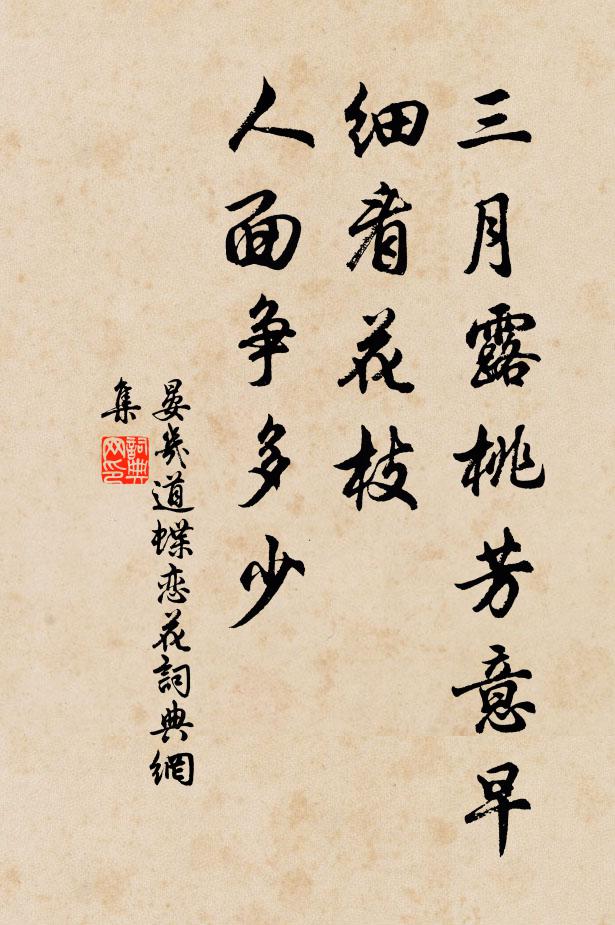 三月露桃芳意早
细看花枝
人面争多少
晏几道蝶恋花詞典網
集
詞典网印